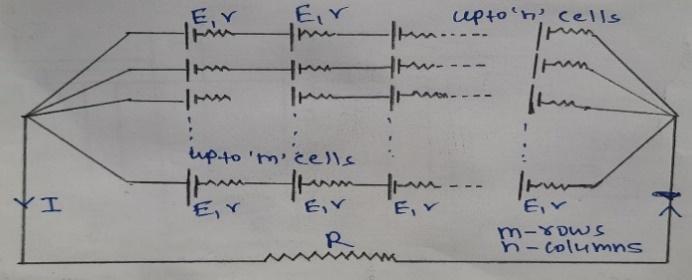 E,r E,r upto 'n' cells
upto 'm' cells
E,r E,r E,r E,r
I
m-rows
R n-columns